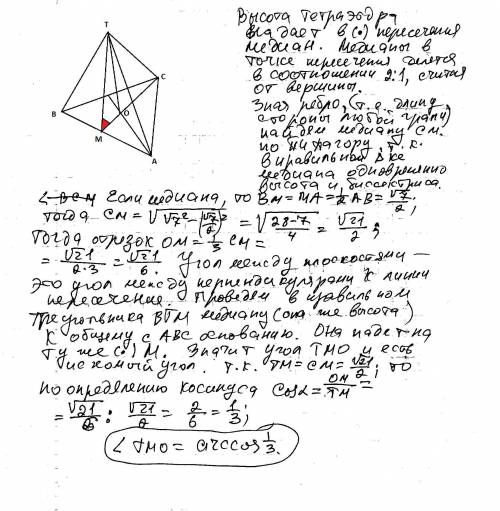 T
C
B
O
M
A
Высота тетраэдра
падает в (•) пересечения
медиан. Медианы в
точке пересечения делятся
в соотношении 2:1, считая
от вершины.
Зная ребро, (т.е. длину
стороны любой грани)
найдем медиану СМ.
по Пифагору, т.к.
в правильном Δ же
медиана одновременно
высота и биссектриса.
Если медиана, то BM = MA = 1/2 AB = √7/2;
тогда CM = √(√7² - (√7/2)²) = √((28-7)/4) = √21/2;
Тогда отрезок OM = 1/3 CM =
= √21/(2·3) = √21/6. Угол между плоскостями —
это угол между перпендикулярами к линии
пересечения. Проведем в правильном
треугольнике ВТМ медиану (она же высота)
к общему с АВС основанию. Она падет на
ту же (•) М. Значит угол ТМО и есть
искомый угол. т.к. TM = CM = √21/2, то
по определению косинуса cosα = OM/TM =
= √21/6 : √21/2 = 2/6 = 1/3;
∠TMO = arccos 1/3.